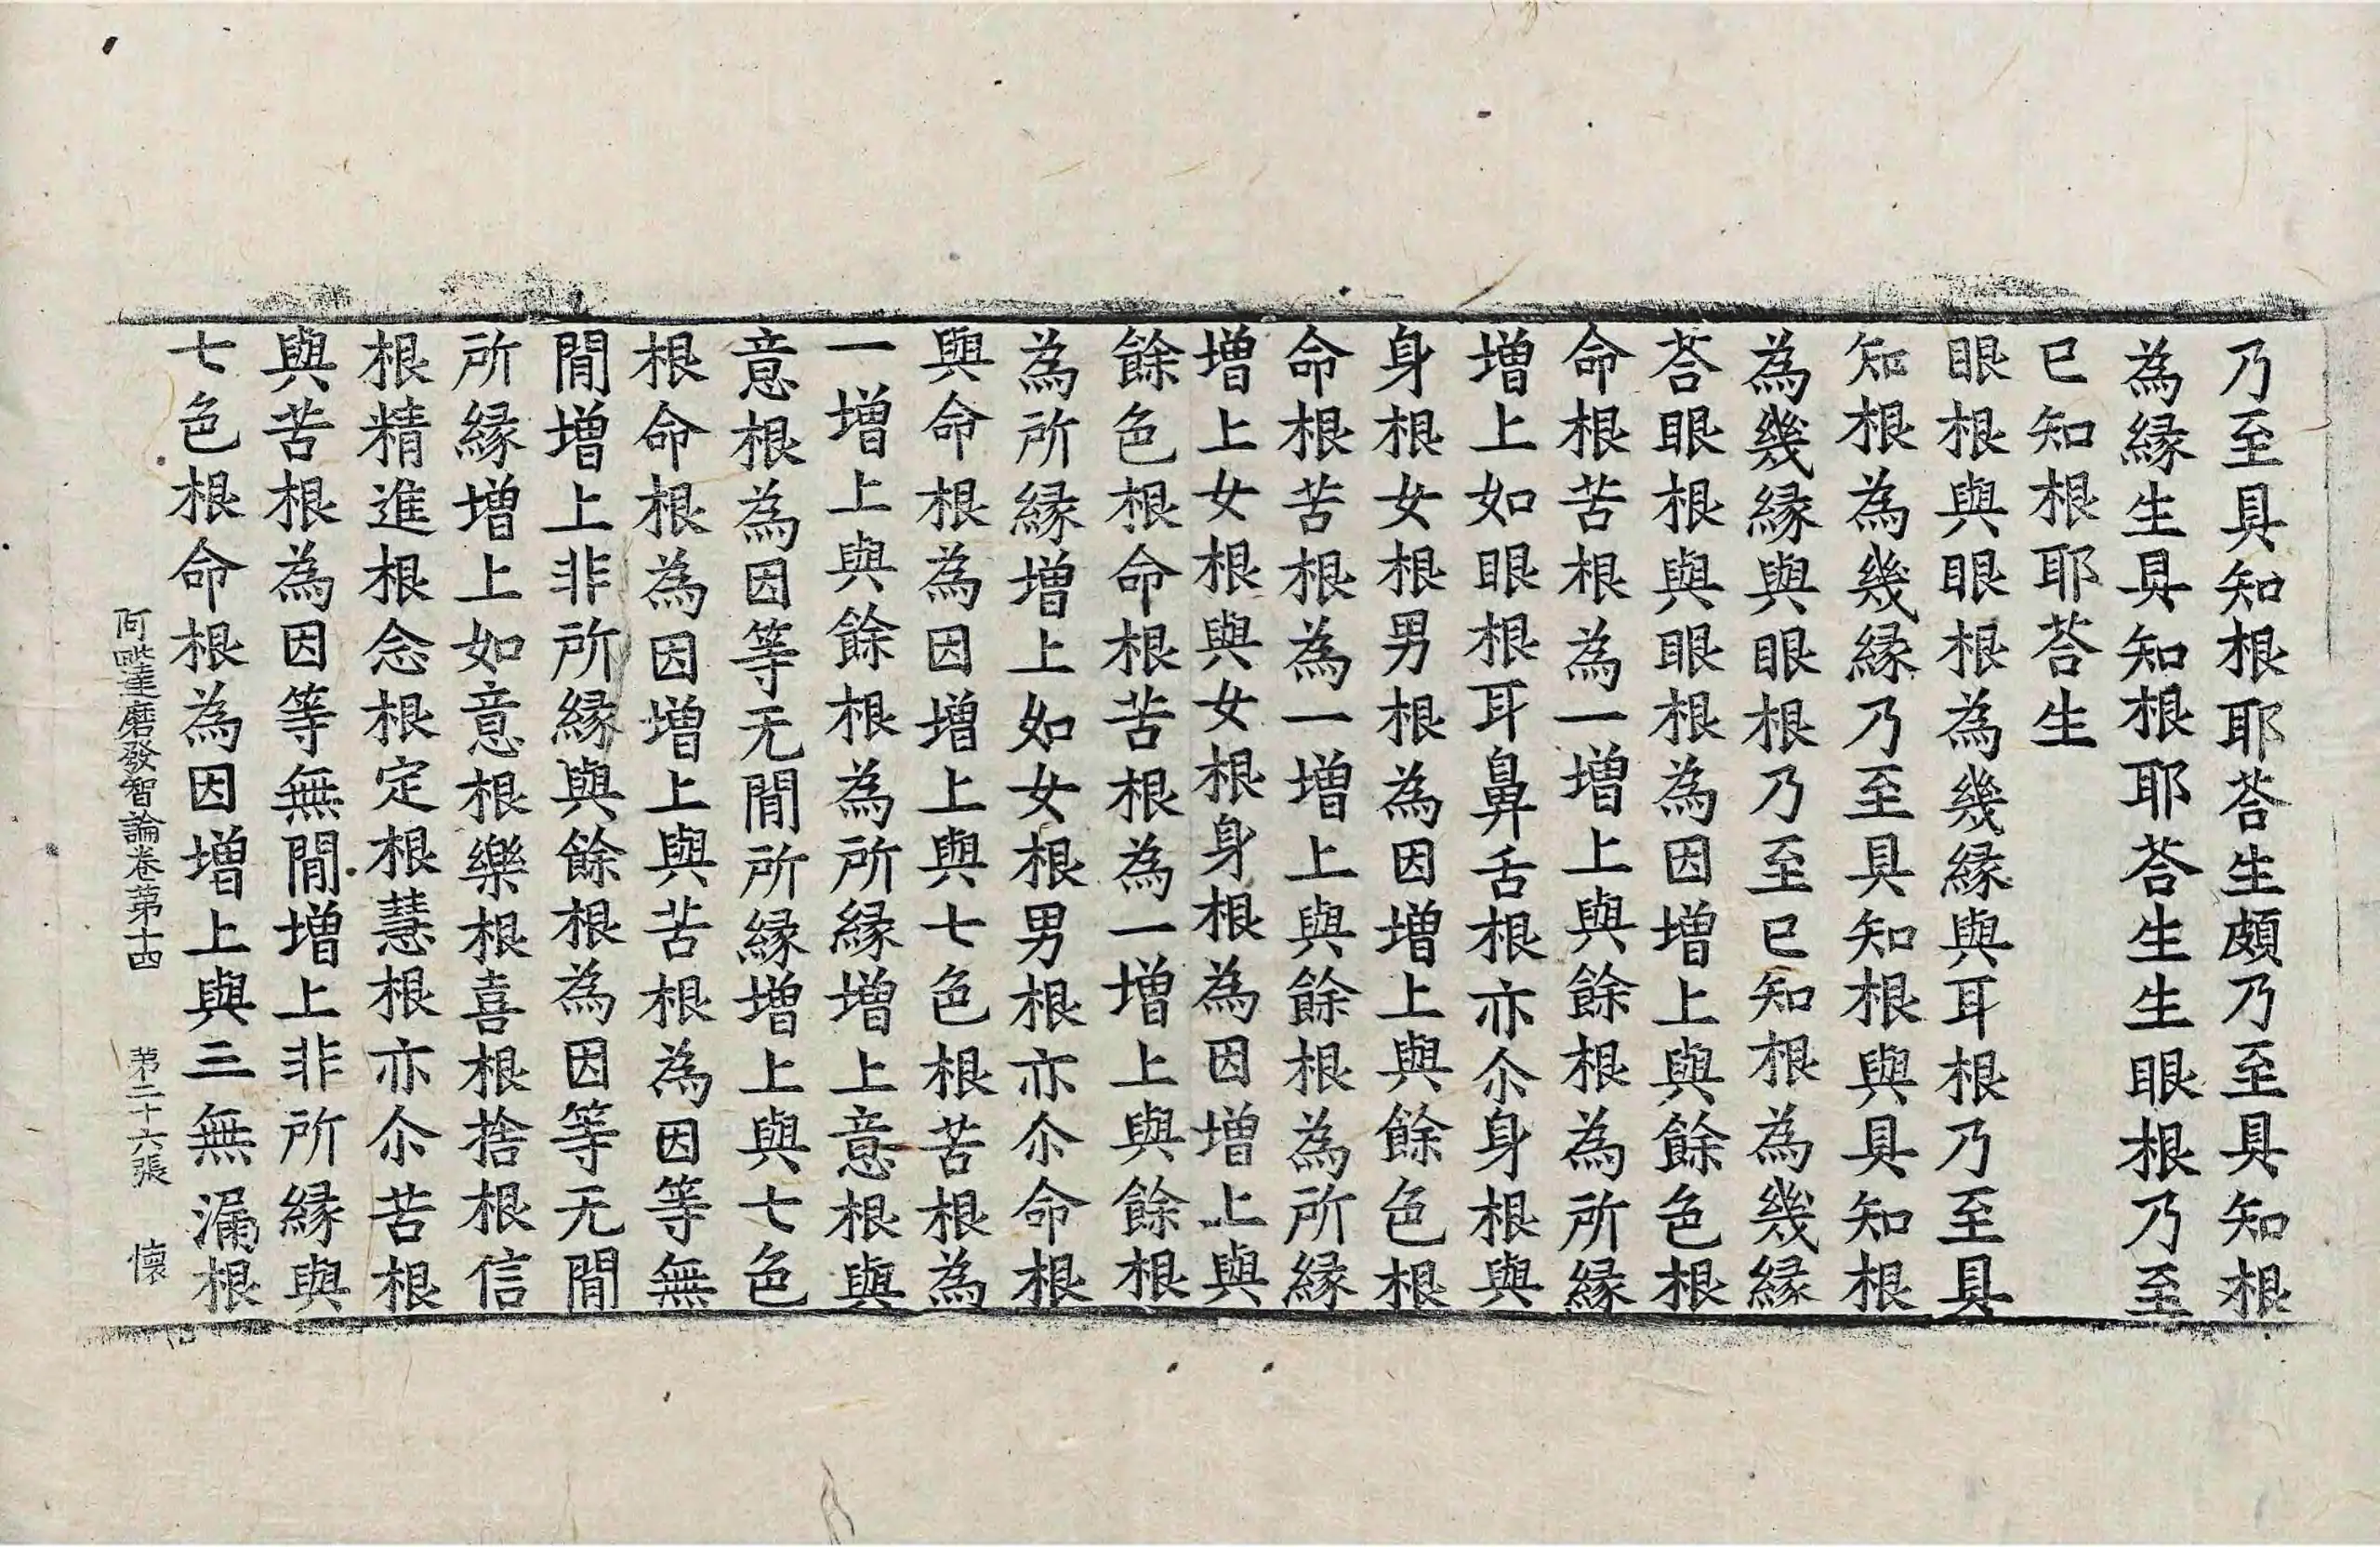 乃至具知根耶荅生頗乃至具知根
為縁生具知根耶荅生生眼根乃至
已知根耶荅生
眼根與眼根為幾縁與耳根乃至具
知根為幾縁乃至具知根與具知根
為幾縁與眼根乃至已知根為幾縁
荅眼根與眼根為因增上與餘色根
命根苦根為一增上與餘根為所縁
增上如眼根耳鼻舌根亦尒身根與
身根女根男根為因增上與餘色根
命根苦根為一增上與餘根為所縁
增上女根與女根身根為因增上與
餘色根命根苦根為一增上與餘根
為所縁增上如女根男根亦尒命根
與命根為因增上與七色根苦根為
一增上與餘根為所縁增上意根與
意根為因等无間所縁增上與七色
根命根為因增上與苦根為因等無
間增上非所縁與餘根為因等无間
所縁增上如意根樂根喜根捨根信
根精進根念根定根慧根亦尒苦根
與苦根為因等無間增上非所縁與
七色根命根為因增上與三無漏根
阿毗達磨發智論卷第十四 第二十六張 懷